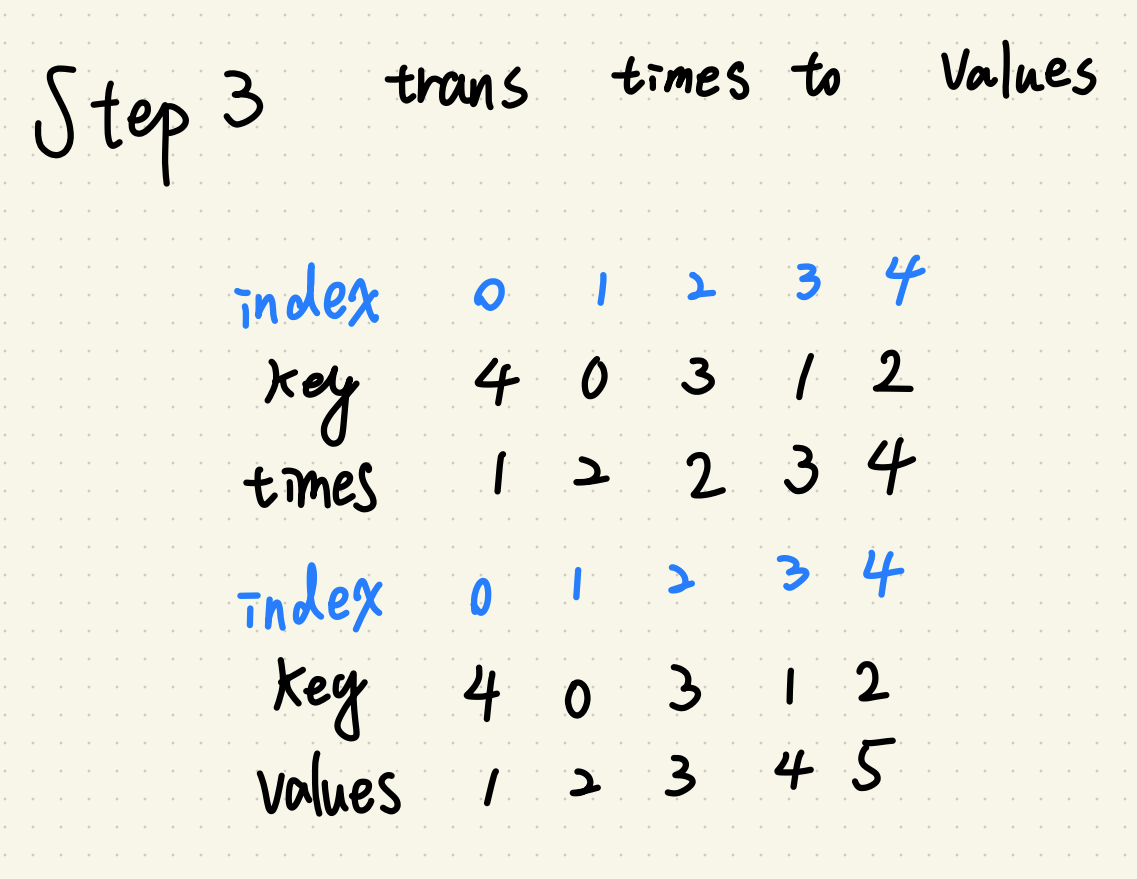 Step 3 trans times to Values
index 0 1 2 3 4
key 4 0 3 1 2
times 1 2 2 3 4
index 0 1 2 3 4
key 4 0 3 1 2
values 1 2 3 4 5